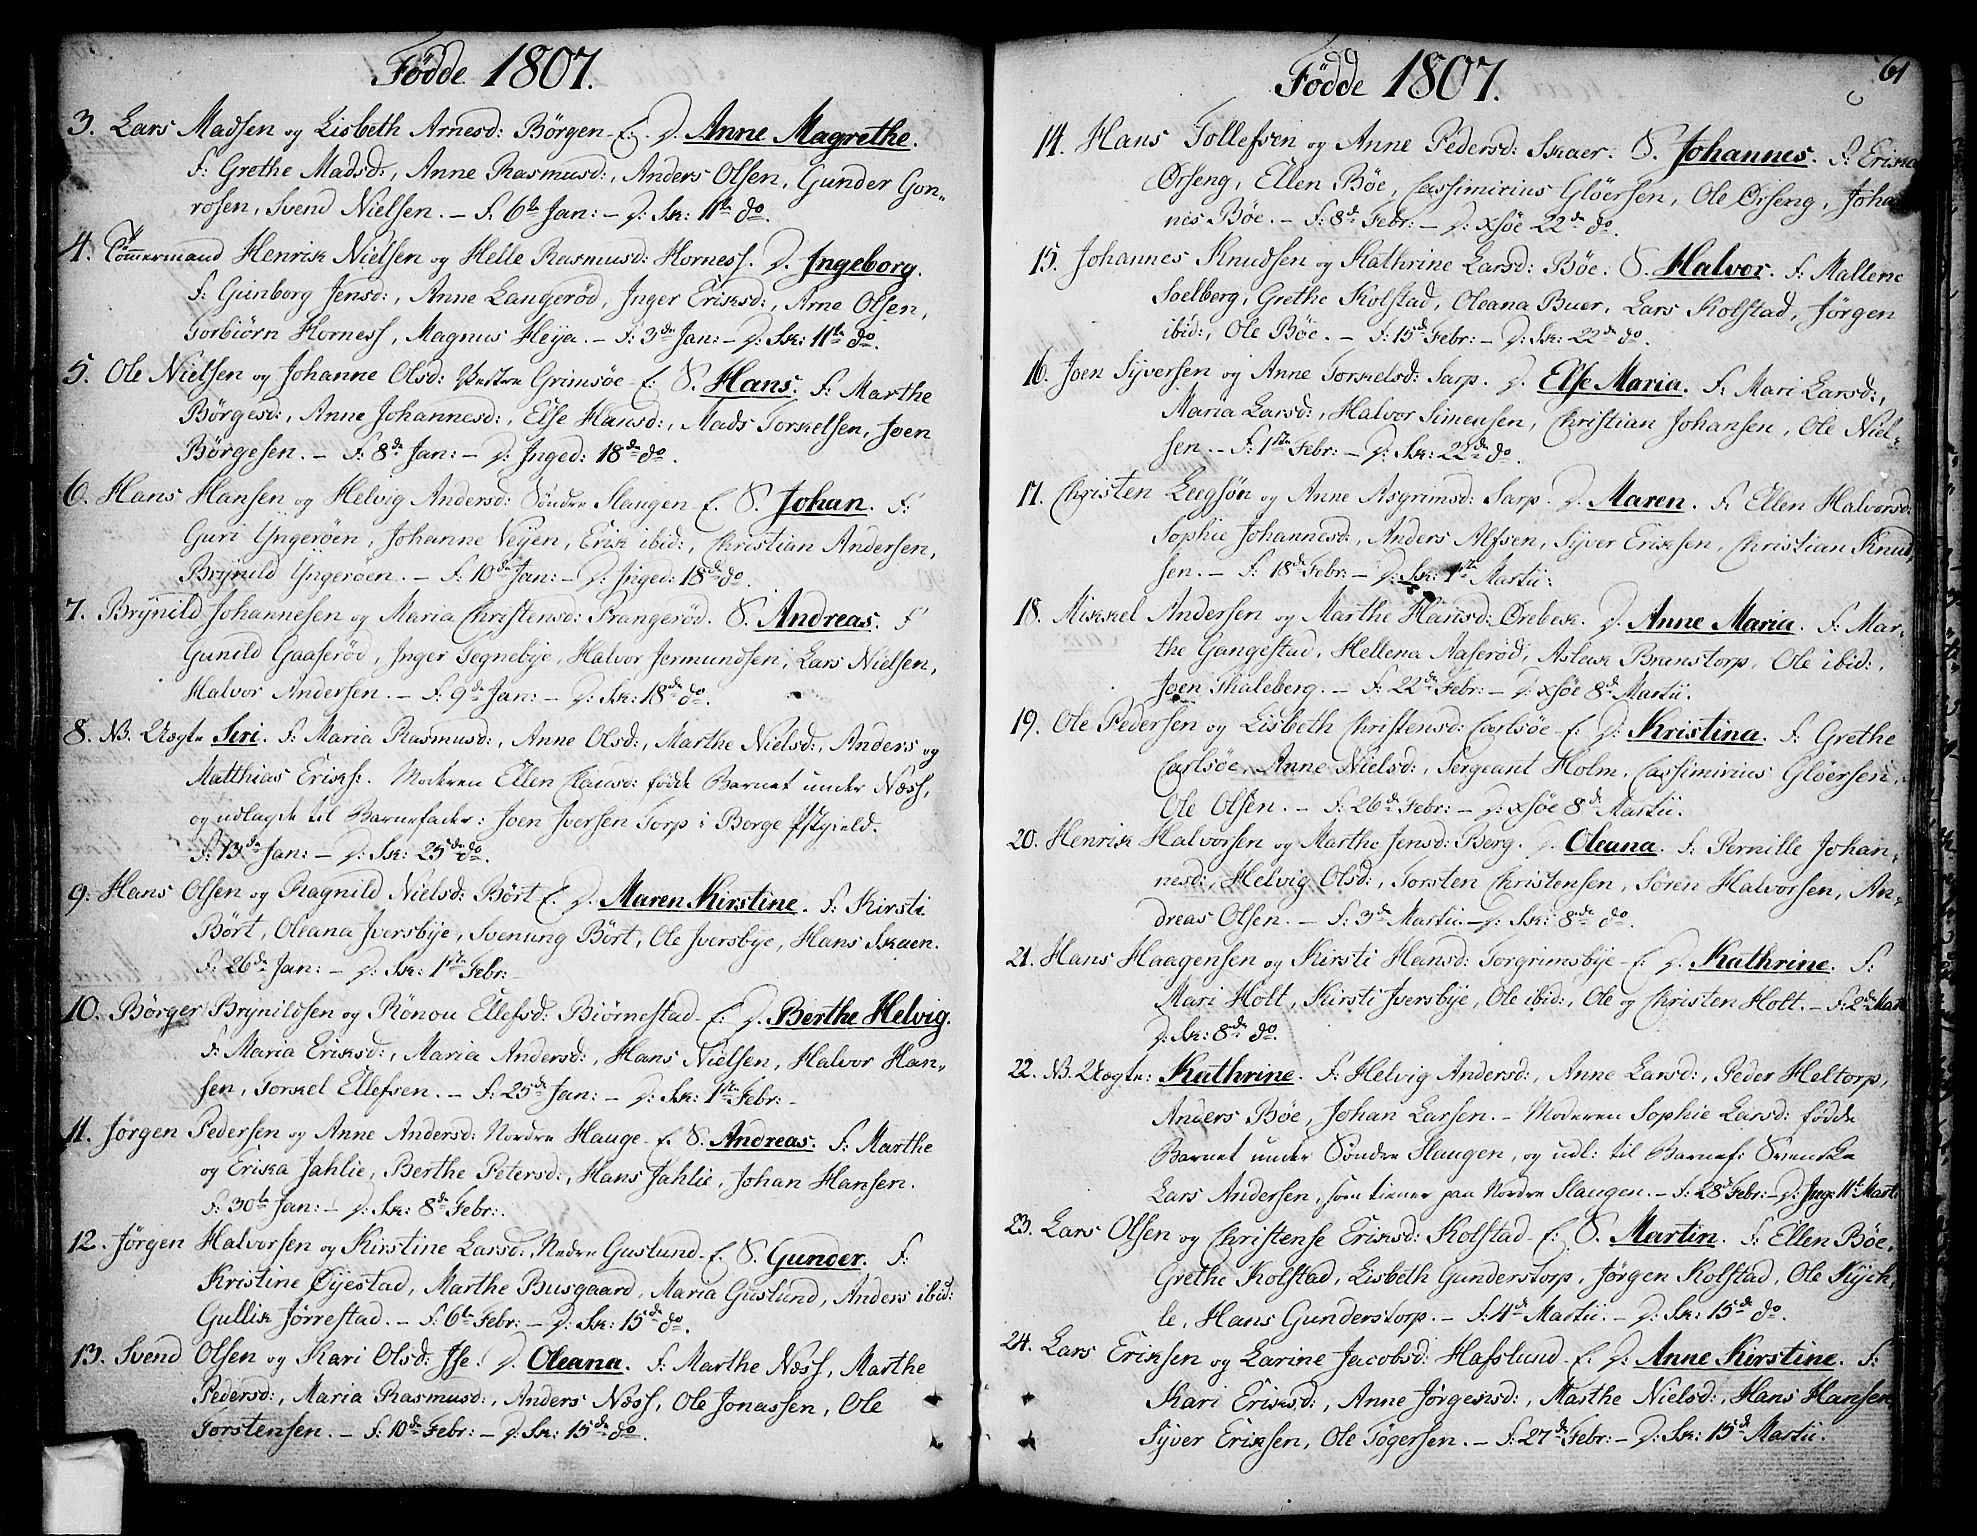 Födde 1807.
3. Lars Madsen og Lisbeth Arnesd: Börgen E. D. Anne Magrethe.
F: Grethe Madsd:, Anne Rasmusd:, Anders Olsen, Gunder Gon-
rosen, Svend Nielsen. – f: 6te Jan: – D: Sk: 11te do.
4. Tömmermand Henrik Nielsen og Helle Rasmusd: Horness. D. Ingeborg.
F: Gunborg Jensd:, Anne Langeröd, Inger Eriksd:, Arne Olsen,
Torbiörn Horness, Magnus Heÿa. – f: 3de Jan: – D: Sk: 11te do.
5. Ole Nielsen og Johanne Olsd: Vestre Grimsöe E: S. Hans. F: Marthe
Börgesd:, Anne Johannesd:, Else Hansd:, Mads Torkelsen, Joen
Börgesen. – f: 8de Jan: – D: Inged: 18de do.
6. Hans Hansen og Helvig Andersd: Söndre Slaugen E. S. Johan. F:
Guri Yngeröen, Johanne Veÿen, Erik ibid:, Christian Andersen,
Brÿnild Yngeröen. – f: 10de Jan: – D: Inged: 18de do.
7. Brÿnild Johannesen og Maria Christensd: Prangeröd. S. Andreas. F
Gunild Gaaseröd, Inger Tegnebÿe, Halvor Jermundsen, Lars Nielsen,
Halvor Andersen. – f: 9de Jan: – D: Sk: 18de do.
8. NB. Uægte Siri. F: Maria Rasmusd:, Anne Olsd:, Marthe Nielsd:, Anders og
Matthias Eriks:. Moderen Ellen Clausd: födde Barnet under Næss,
og udlagde til Barnefader: Joen Iversen Torp i Borge Pstgield.
f: 13de Jan: – D: Sk: 25de do.
9. Hans Olsen og Ragnild Nielsd: Bört E. D. Maren Kirstine. F: Kirsti
Bört, Oleana Iversbÿe, Svenung Bört, Ole Iversbÿe, Hans Skaen.
f: 26de Jan: – D: Sk: 1ste Febr: –
10. Börger Brÿnildsen og Rönou Ellefsd: Biörnestad E: D. Berthe Helvig.
F: Maria Eriksd:, Maria Andersd:, Hans Nielsen, Halvor Han-
sen, Torkel Ellefsen. – f: 25de Jan: – D: Sk: 1ste Febr: –
11. Jörgen Pedersen og Anne Andersd: Nordre Hauge E. S. Andreas. F: Marthe
og Erika Jahlie, Berthe Petersd:, Hans Jahlie, Johan Hansen.
f: 30te Jan: – D: Sk: 8de Febr:.
12. Jörgen Halvorsen og Kirstine Larsd: Nedre Guslund E. S. Gunder. F:
Kristine Öÿestad, Marthe Busgaard, Maria Guslund, Anders ibid:
Gullik Jörrestad. – f: 6te Febr: – D: Sk: 15de do.
13. Svend Olsen og Kari Olsd: Ise. D. Oleana. F: Marthe Næss, Marthe
Pedersd:, Maria Rasmusd:, Anders Næss, Ole Jonassen, Ole
Torstensen. – f: 10de Febr: – D: Sk: 15de do.
Födde 1807.
61
14. Hans Tollefsen og Anne Pedersd: Skaer. S. Johannes. F: Erika
Örseng, Ellen Böe, Cassimirius Glöersen, Ole Örseng, Johan
nes Böe. – f: 8de Febr: – D: xsöe 22de do.
15. Johannes Knudsen og Kathrine Larsd: Böe. S. Halvor. F: Mallene
Soelberg, Grethe Kolstad, Oleana Buer, Lars Kolstad, Jörgen
ibid:, Ole Böe. – f: 15de Febr: – D: Sk: 22de do.
16. Joen Sÿversen og Anne Torkelsd: Sarp. D. Else Maria. F: Mari Larsd:,
Maria Larsd:, Halvor Simensen, Christian Johansen, Ole Niel-
sen. – f: 1ste Febr: – D: Sk: 22de do.
17. Christen Leegsön og Anne Asgrimsd: Sarp. D. Maren. F: Ellen Halvorsd:
Sophie Johannesd:, Anders Alfsen, Sÿver Eriksen, Christian Knud-
sen. – f: 18de Febr: – D: Sk: 1ste Martii:
18. Mikkel Andersen og Marthe Hansd: Örebek. D. Anne Maria. F: Mar-
the Gangestad, Hellena Aaseröd, Aslak Branstorp, Ole ibid:,
Joen Thaleberg. – f: 22de Febr: – D: xsöe 8de Martii.
19. Ole Pedersen og Lisbeth Christensd: Carlsöe E: D: Kristina. F: Grethe
Carlsöe, Anne Nielsd:, Sergeant Holm, Cassimirius Glöersen,
Ole Olsen. – f: 26de Febr: – D: xsöe 8de Martii.
20. Henrik Halvorsen og Marthe Jensd: Berg. D. Oleana. F: Pernille Johan-
nesd:, Helvig Olsd:, Torsten Christensen, Sören Halvorsen, An-
dreas Olsen. – f: 3de Martii – D: Sk: 8de do.
21. Hans Haagensen og Kirsti Hansd: Torgrimsbÿe E: D. Kathrine. F:
Mari Holt, Kirsti Iversbÿe, Ole ibid:, Ole og Christen Holt. – f: 2de Mart
D: Sk: 8de do.
22. NB. Uægte: Kathrine. F: Helvig Andersd:, Anne Larsd:, Peder Heltorp,
Anders Böe, Johan Larsen. – Moderen Sophie Larsd: födde
Barnet under Söndre Slaugen, og udl: til Barnef: Svenske
Lars Andersen, som tiener paa Nordre Slaugen. – f: 28de Febr: – D: Ing: 11te Marti:
23. Lars Olsen og Christense Eriksd: Kolstad E: S. Martin. F: Ellen Böe,
Grethe Kolstad, Lisbeth Gunderstorp, Jörgen Kolstad, Ole Kÿck-
le, Hans Gunderstorp. – f: 4de Martii. – D: Sk: 15de do.
24. Lars Eriksen og Larine Jacobsd: Hafslund E. D: Anne Kirstine. F:
Kari Eriksd:, Anne Jörgensd:, Marthe Nielsd:, Hans Hansen
Sÿver Eriksen, Ole Tögersen. – f: 27de Febr: – D: Sk: 15de Martii.